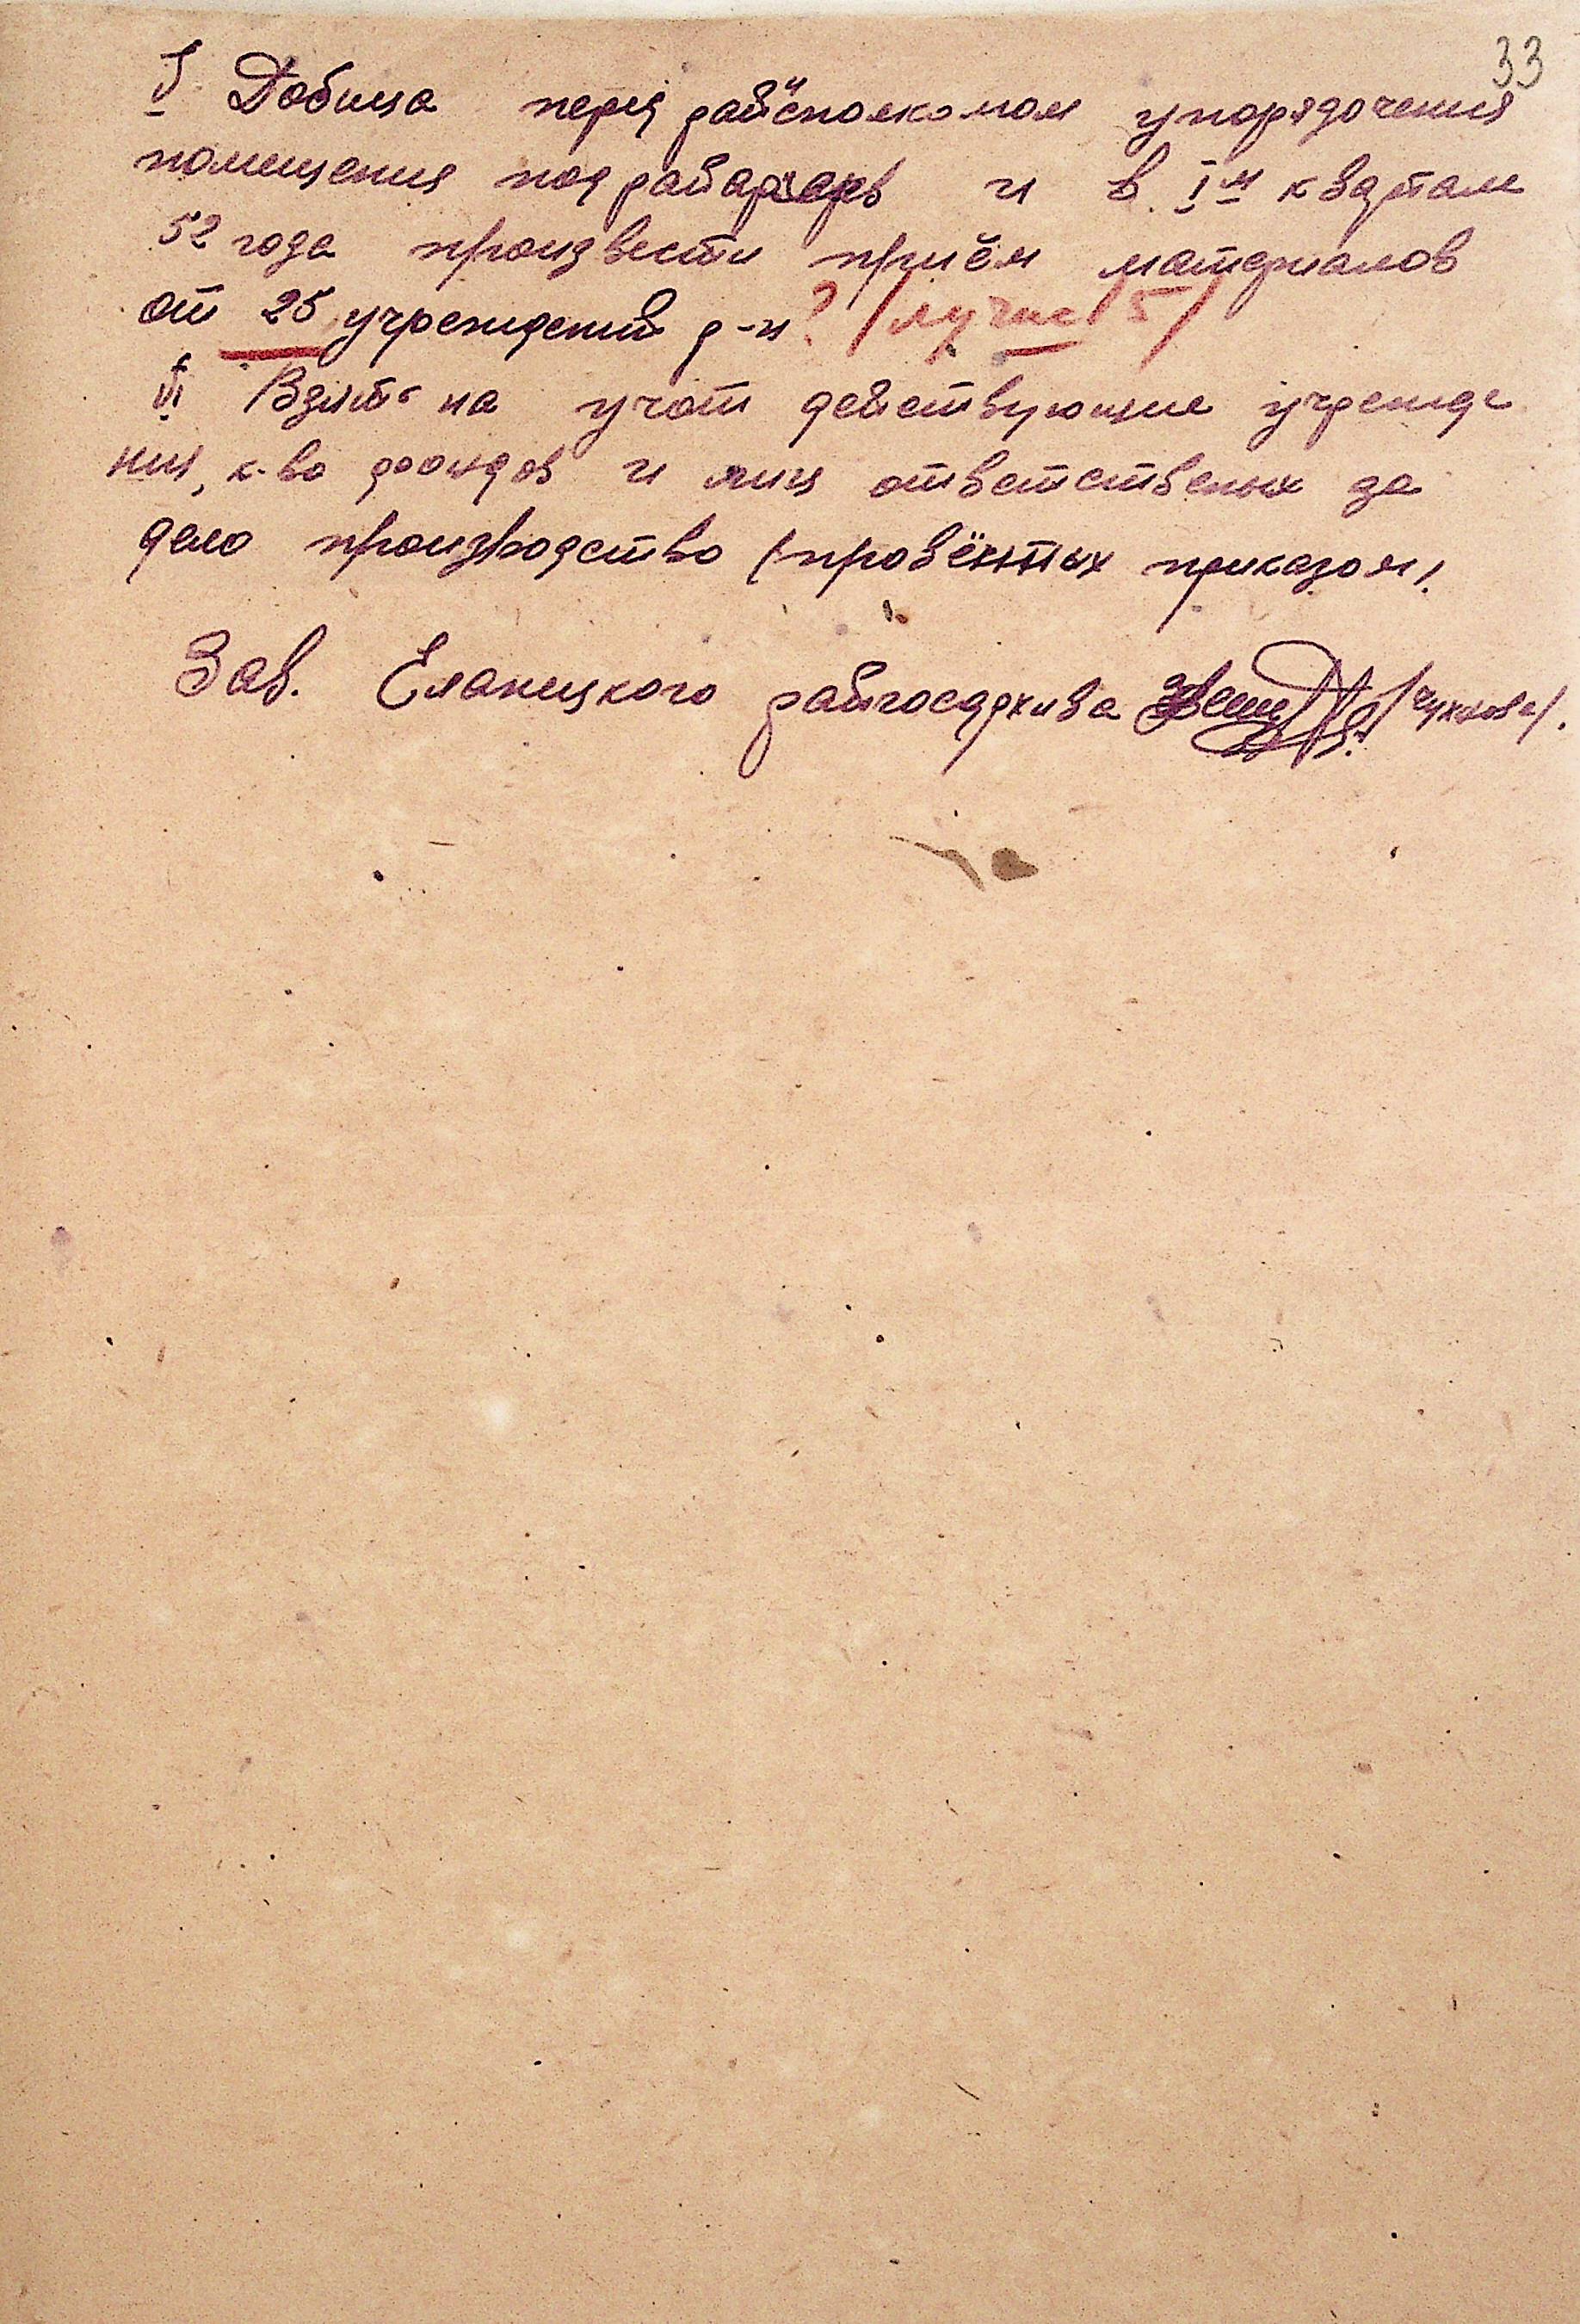 33
V Добица перед райисполкомом упорядочения
помещения под райархив и в I м квартале
52 года произвести приём материалов
от 25 учреждений р-н ? /лучше 5/
VI Взять на учот действующие учрежде
ния, к-во фондов и лиц ответственых за
дело производство (провёнтых приказом).
Зав. Еланецкого райгосархива